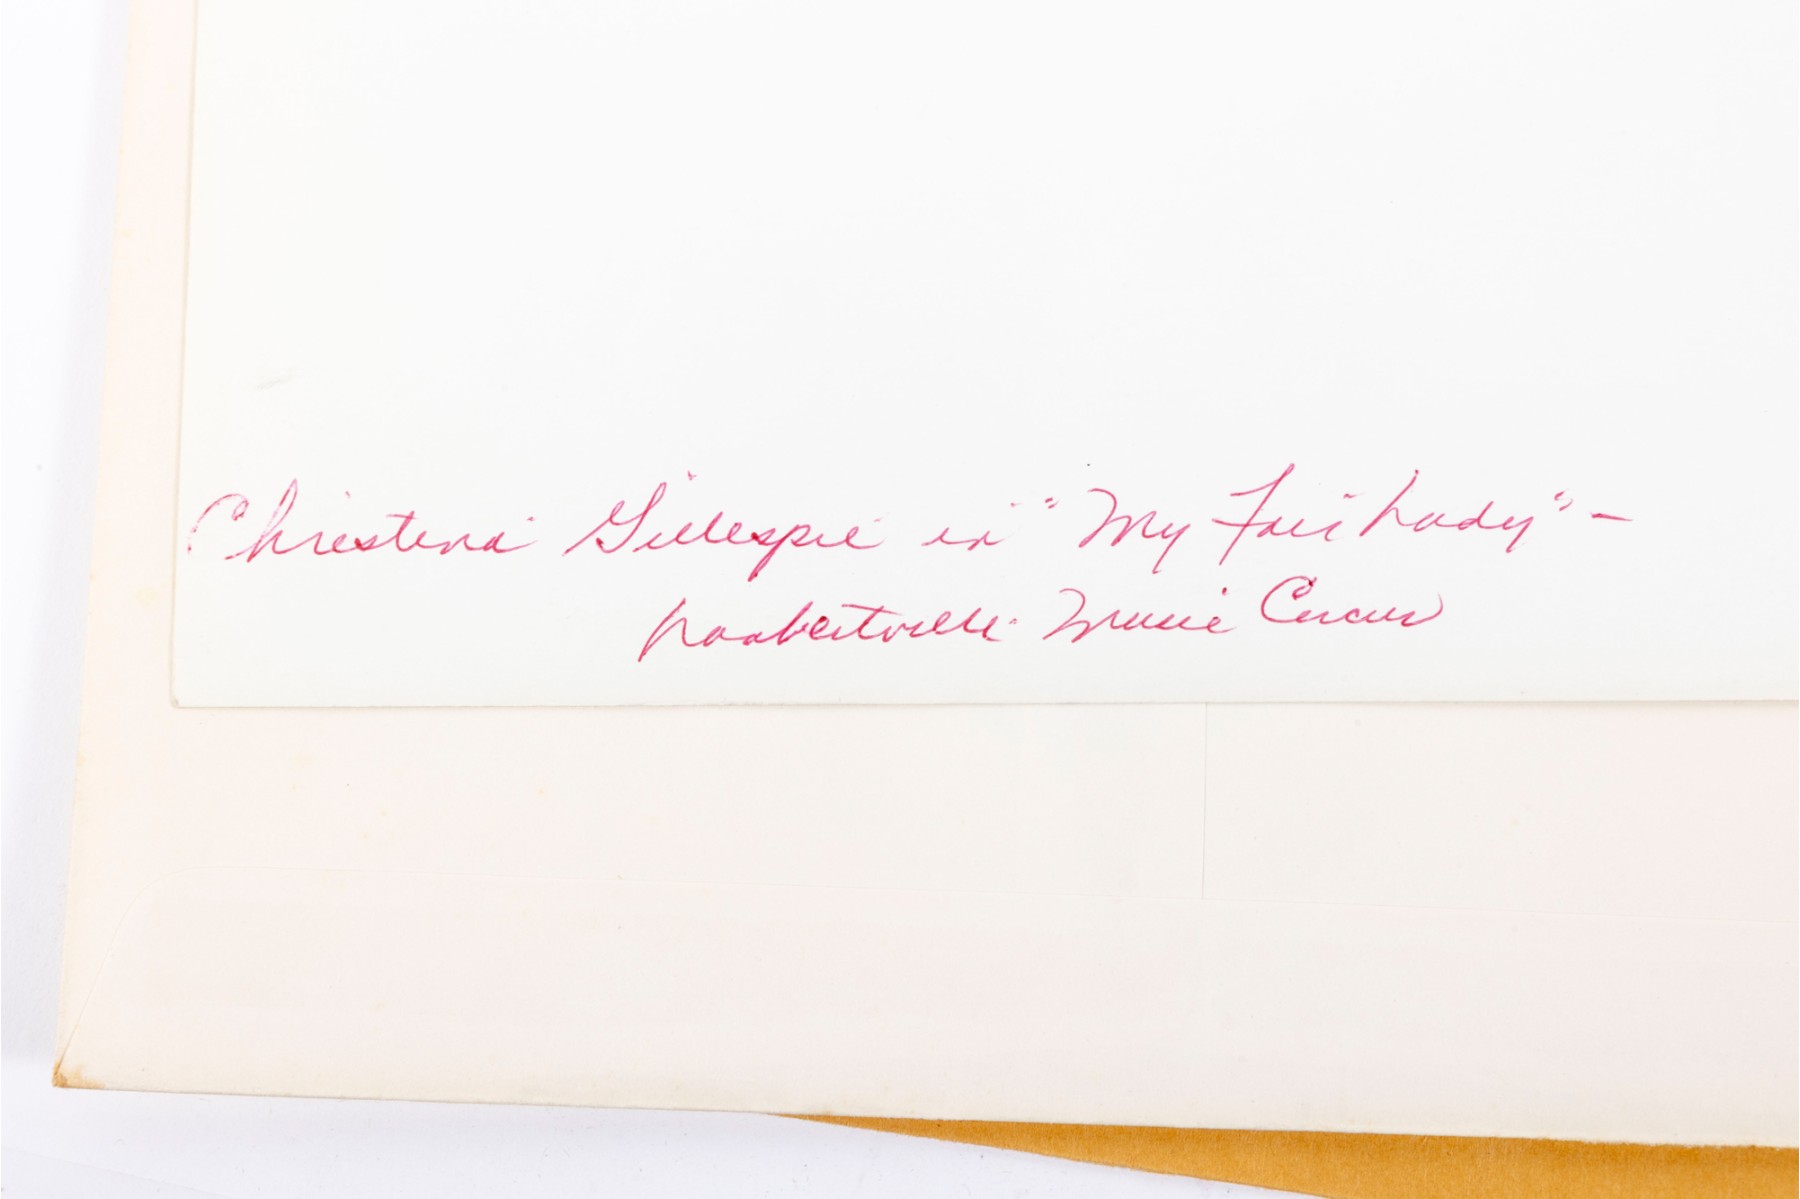 Christina Gillespie in "My Fair Lady" –
Lambertville Music Circus